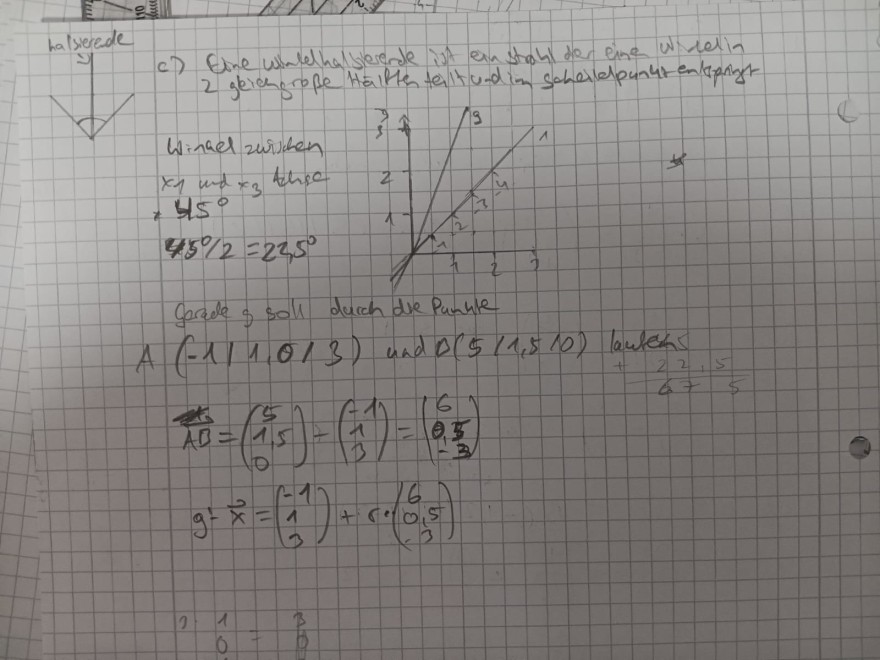 halsierede
c) Eine winkelhalsierende ist ein strahl der eine Winkel in
2 gleichgroße Hälften teilt und im scheitelpunkt entspringt
Winkel zwischen
x1 und x3 Achse
45°
45°/2 = 22,5°
3 g 1
2
1
1 2 3 4
1 2 3
Gerade g soll durch die Punkte
A (-1/1,0/3) und B(5/1,5/0) laufen
+ 22,5
67 5
AB = (5 1,5 0) - (-1 1 3) = (6 0,5 -3)
g: x = (-1 1 3) + r · (6 0,5 -3)
1 3
0 = 0